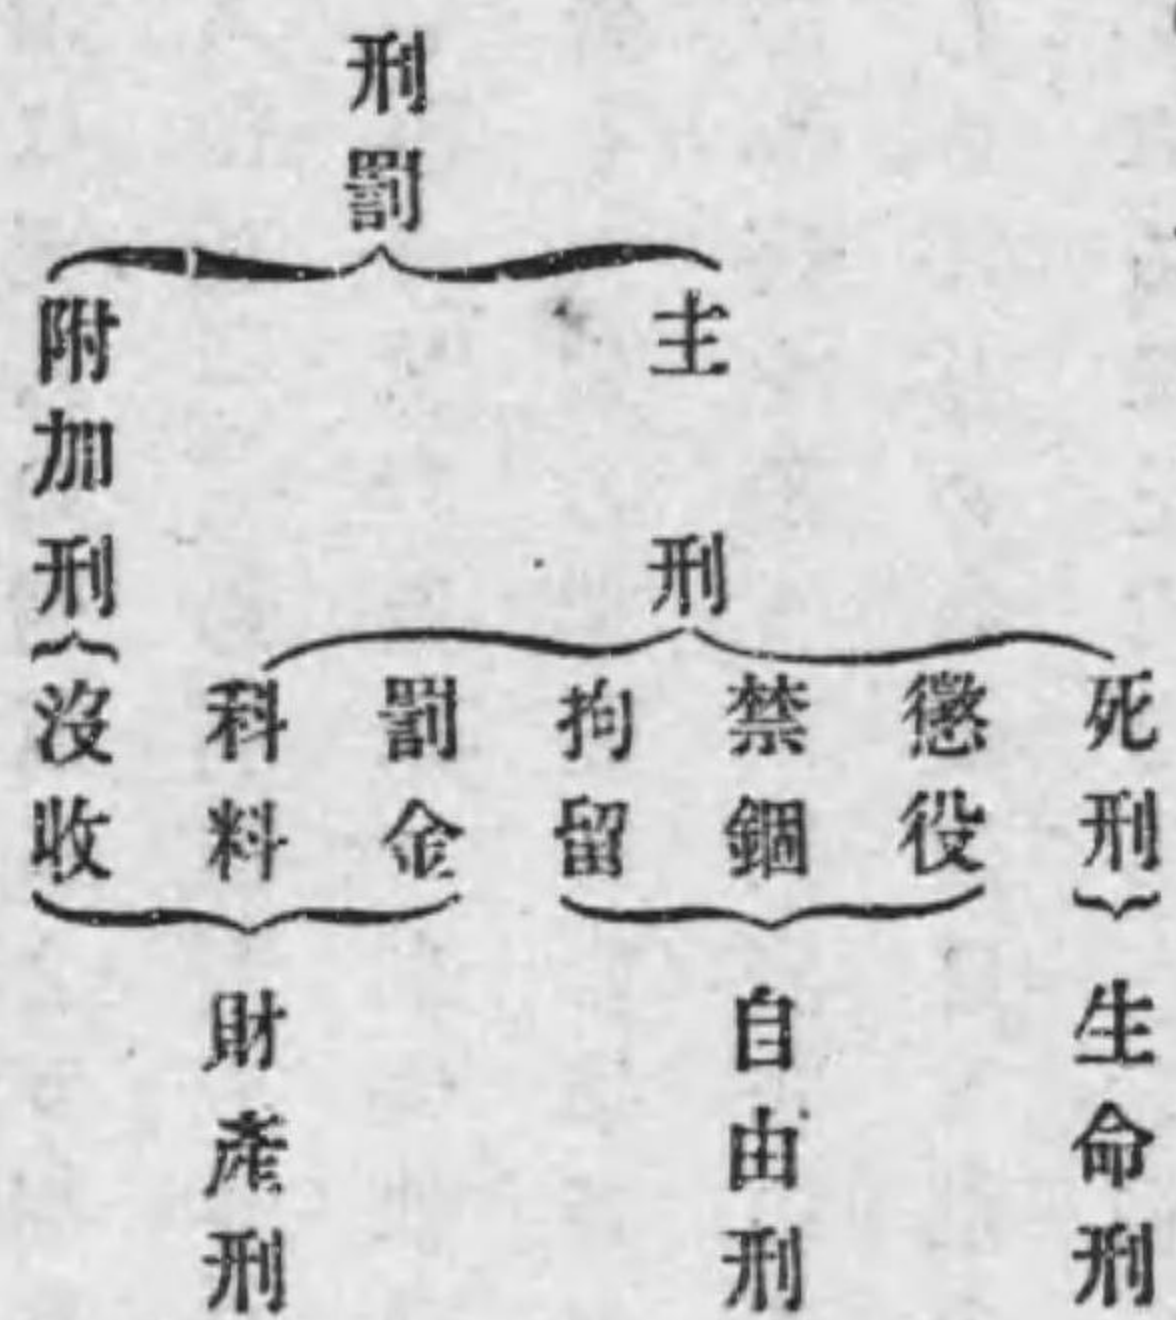 刑罰
主刑
死刑
懲役
禁錮
拘留
罰金
科料
附加刑
沒收
生命刑
自由刑
財產刑